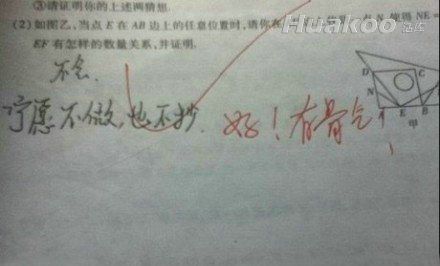 ③请证明你的上述两猜想.
(2)如图乙,当点E在AB边上的任意位置时,请你在
使得NE
EF有怎样的数量关系,并证明.
不会.
宁愿不做,也不抄. 好!有骨气!
D
N
A E B
甲
Huakoo 活库